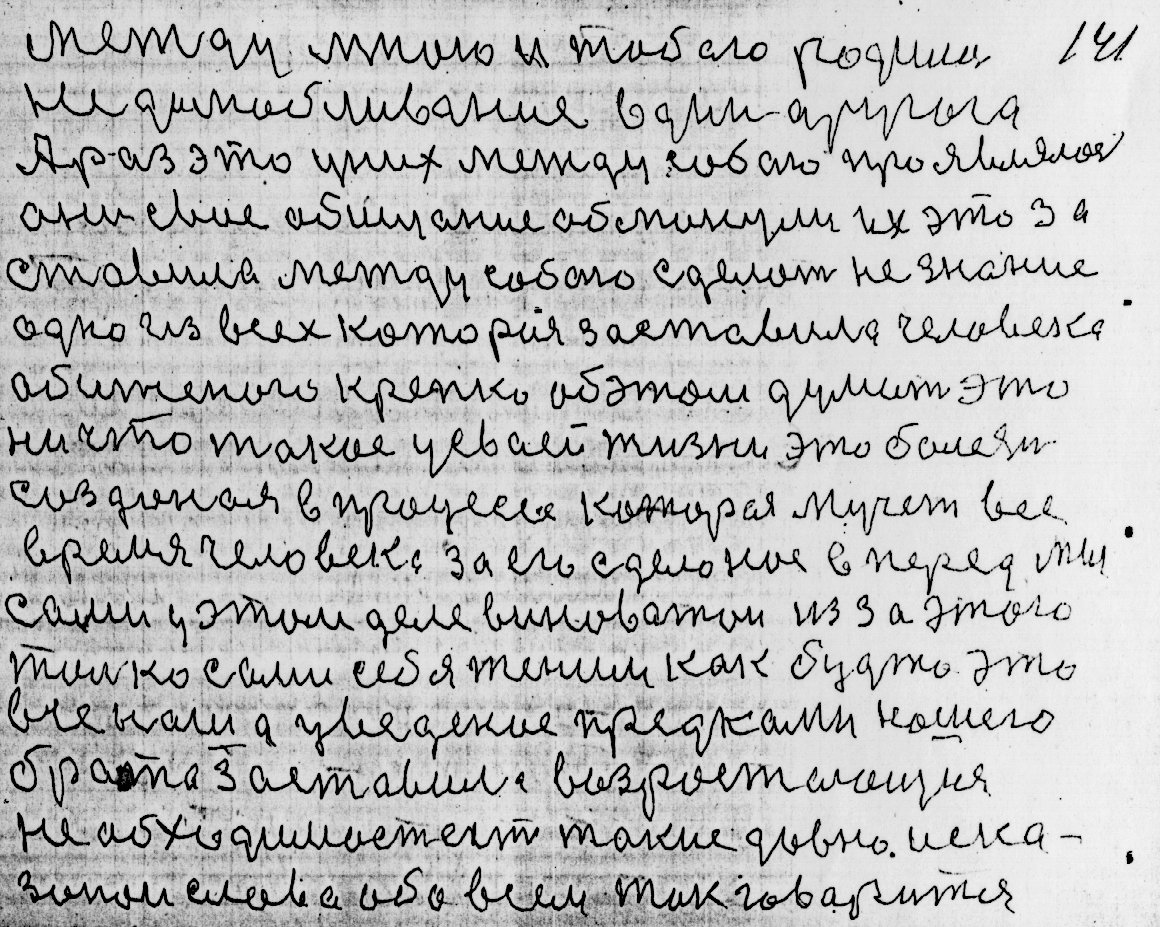 между мною и тобою родила 141
недолюбливание в друг-друга
А раз это у них между собою проявлялся
они свое обищание обманули их это за
ставила между собою сделат не знание
одно из всех которая заставила человека
обиженого крепко об этом думат это
ни что такое у своей жизни это болезн
созданая в процессе которая мучет все
время человека за его сделоное в перед мы
сами у этом деле виноватои из за этого
толко сами себя женим как будто это
все наша уведение предками нашего
брата заставила возростающия
необходимостей такие довно иска-
заной слова обо всем так говарится